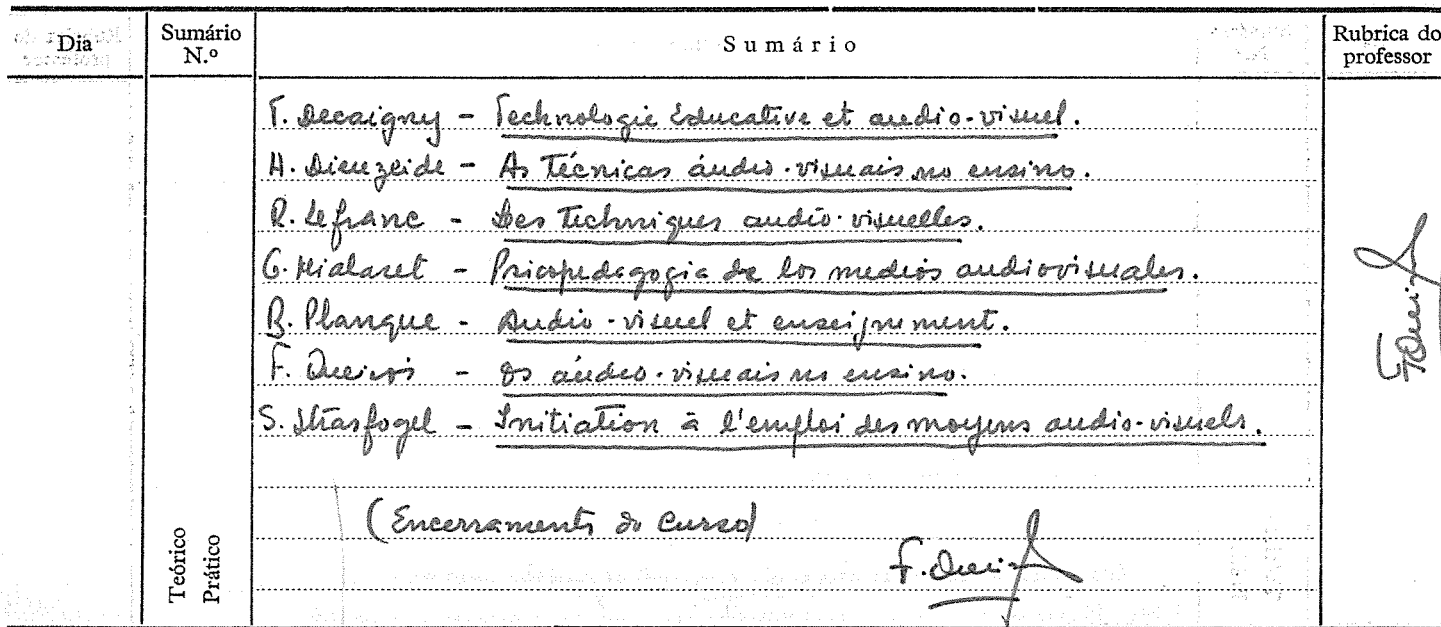 Dia Sumário N.º Sumário Rubrica do professor
T. Decaigny - Technologie Educative et audio-visuel.
H. Dieuzeide - As Técnicas áudio-visuais no ensino.
R. Lefranc - Les Techniques audio-visuelles.
G. Mialaret - Psicopedagogia de los medios audiovisuales.
B. Planque - Audio-visuel et enseignement.
F. Queirós - Os áudio-visuais no ensino.
S. Strasfogel - Initiation à l'emploi des moyens audio-visuels.
(Encerramento do Curso)
Teórico
Prático